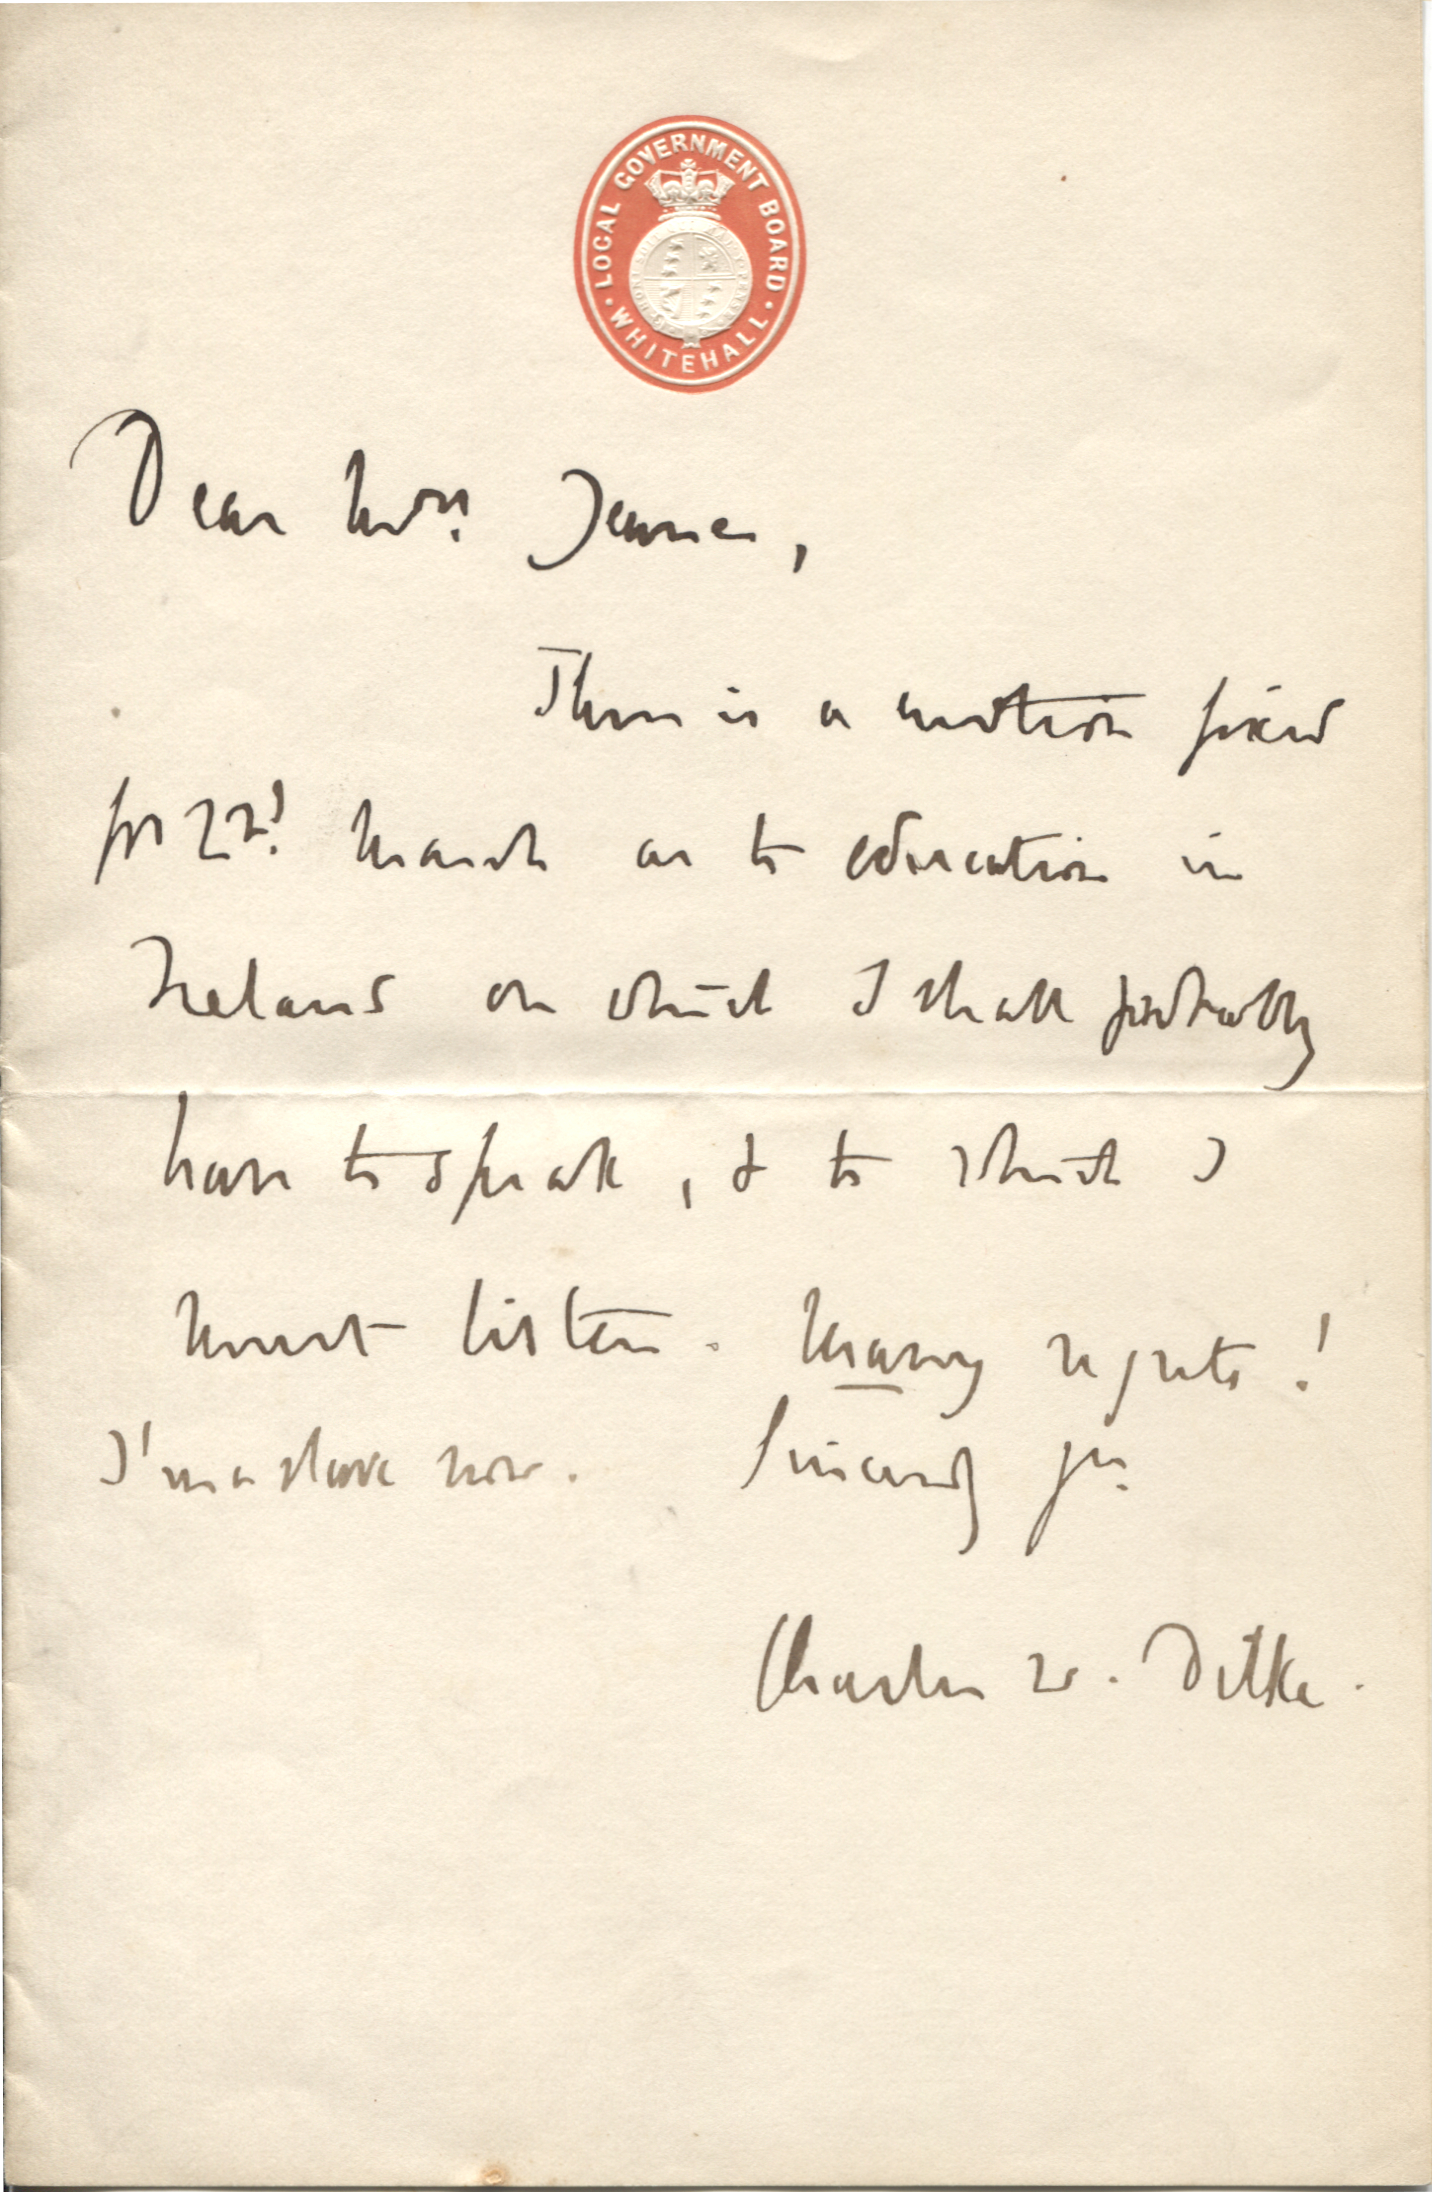 LOCAL GOVERNMENT BOARD
WHITEHALL
HONI SOIT QUI MAL Y PENSE
Dear Mrs.
There is a motion fixed
for 22d. March as to education in
Ireland on which I shall probably
have to speak, & to which I
must listen. Many regrets!
I'm a slave now. Sincerely yrs.
Charles W. Dilke.